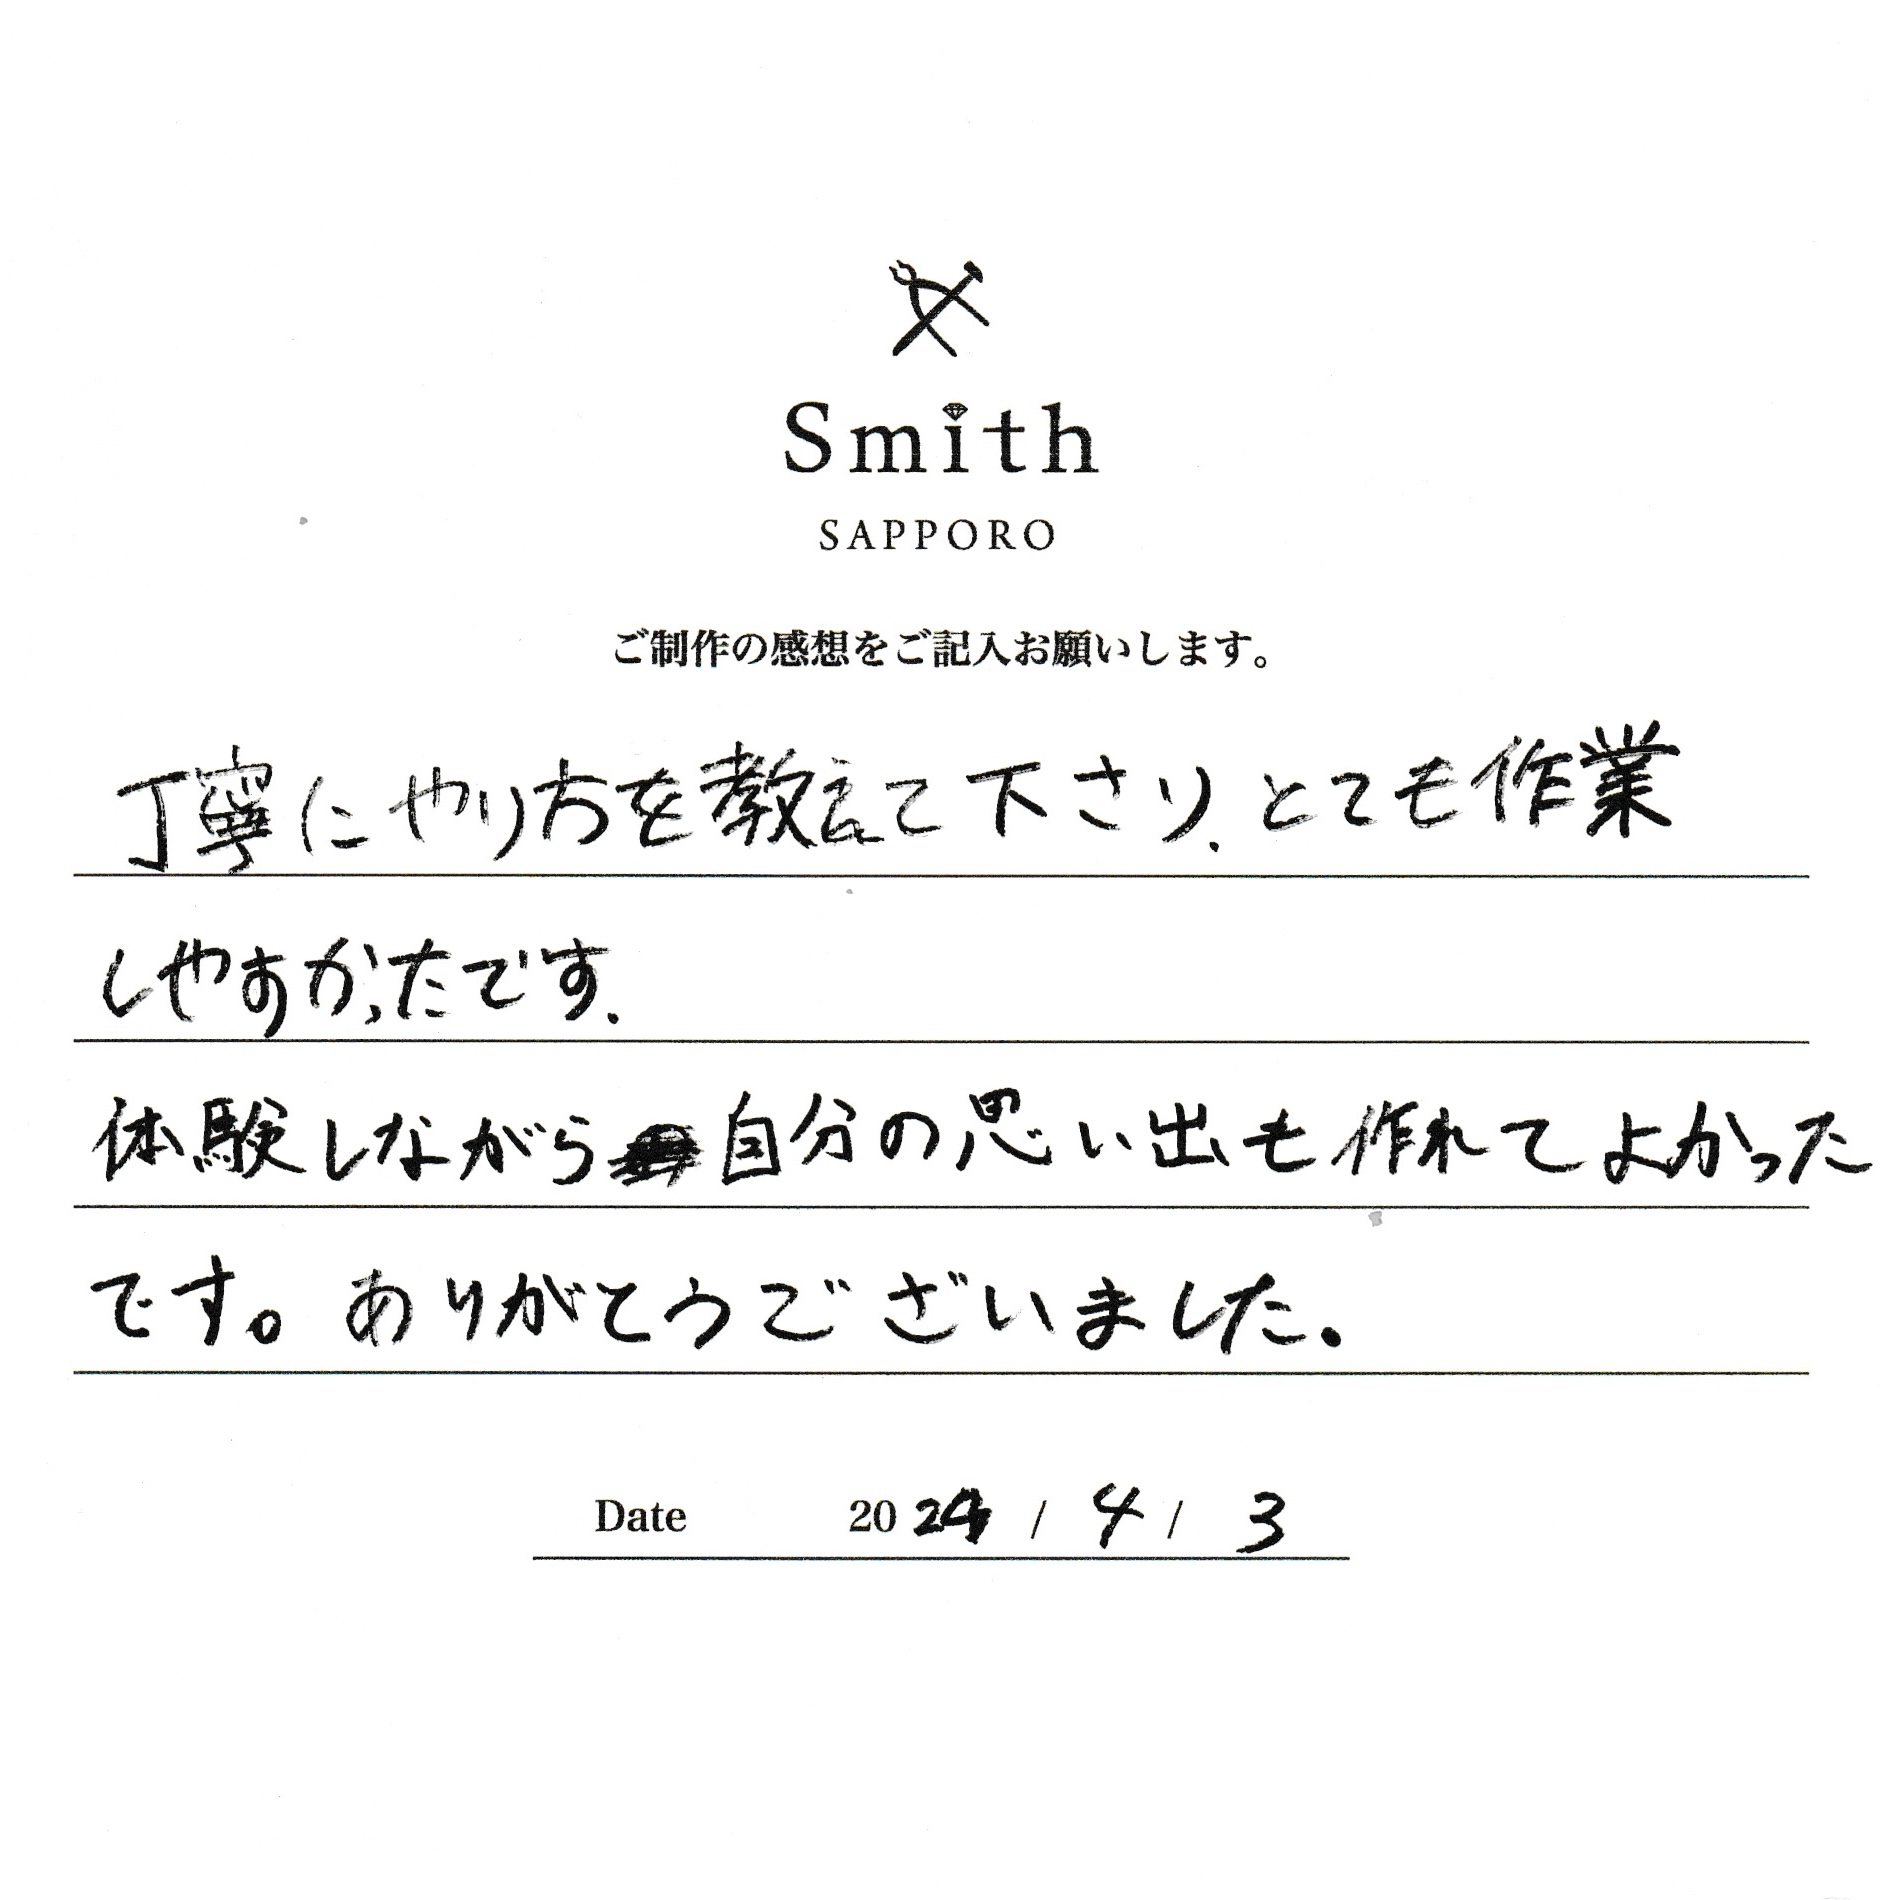 Smith
SAPPORO
ご制作の感想をご記入お願いします。
丁寧にやり方を教えて下さり、とても作業
しやすかったです.
体験しながら自分の思い出も作れてよかった
です。ありがとうございました。
Date 2024 / 4 / 3